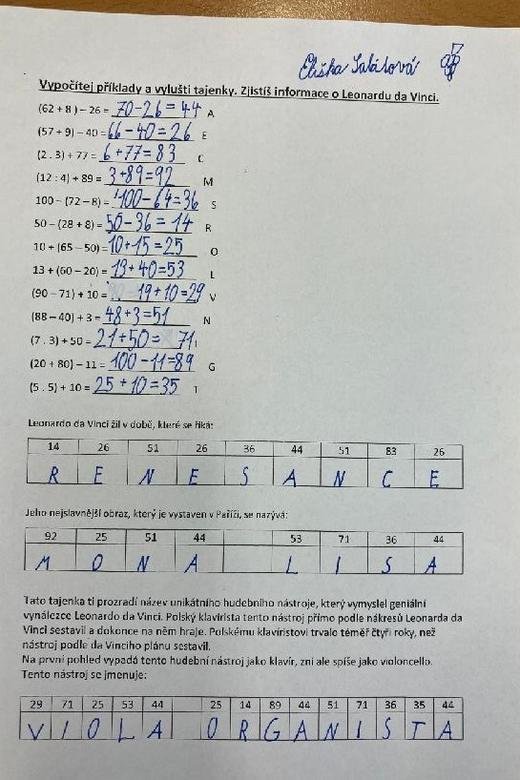 Eliška Salátová
Vypočítej příklady a vylušti tajenky. Zjistíš informace o Leonardu da Vinci.
(62 + 8 ) – 26 = 70-26=44 A
(57 + 9) – 40 = 66-40=26 E
(2 . 3) + 77 = 6+77=83 C
(12 : 4) + 89 = 3+89=92 M
100 – (72 – 8) = 100-64=36 S
50 – (28 + 8) = 50-36=14 R
10 + (65 – 50) = 10+15=25 O
13 + (60 – 20) = 13+40=53 L
(90 – 71) + 10 = 19+10=29 V
(88 – 40) + 3 = 48+3=51 N
(7 . 3) + 50 = 21+50=71 I
(20 + 80) – 11 = 100-11=89 G
(5 . 5) + 10 = 25+10=35 T
Leonardo da Vinci žil v době, které se říká:
14 26 51 26 36 44 51 83 26
R E N E S A N C E
Jeho nejslavnější obraz, který je vystaven v Paříži, se nazývá:
92 25 51 44 53 71 36 44
M O N A L I S A
Tato tajenka ti prozradí název unikátního hudebního nástroje, který vymyslel geniální
vynálezce Leonardo da Vinci. Polský klavírista tento nástroj přímo podle nákresů Leonarda da
Vinci sestavil a dokonce na něm hraje. Polskému klavíristovi trvalo téměř čtyři roky, než
nástroj podle da Vinciho plánu sestavil.
Na první pohled vypadá tento hudební nástroj jako klavír, zní ale spíše jako violoncello.
Tento nástroj se jmenuje:
29 71 25 53 44 25 14 89 44 51 71 36 35 44
V I O L A O R G A N I S T A